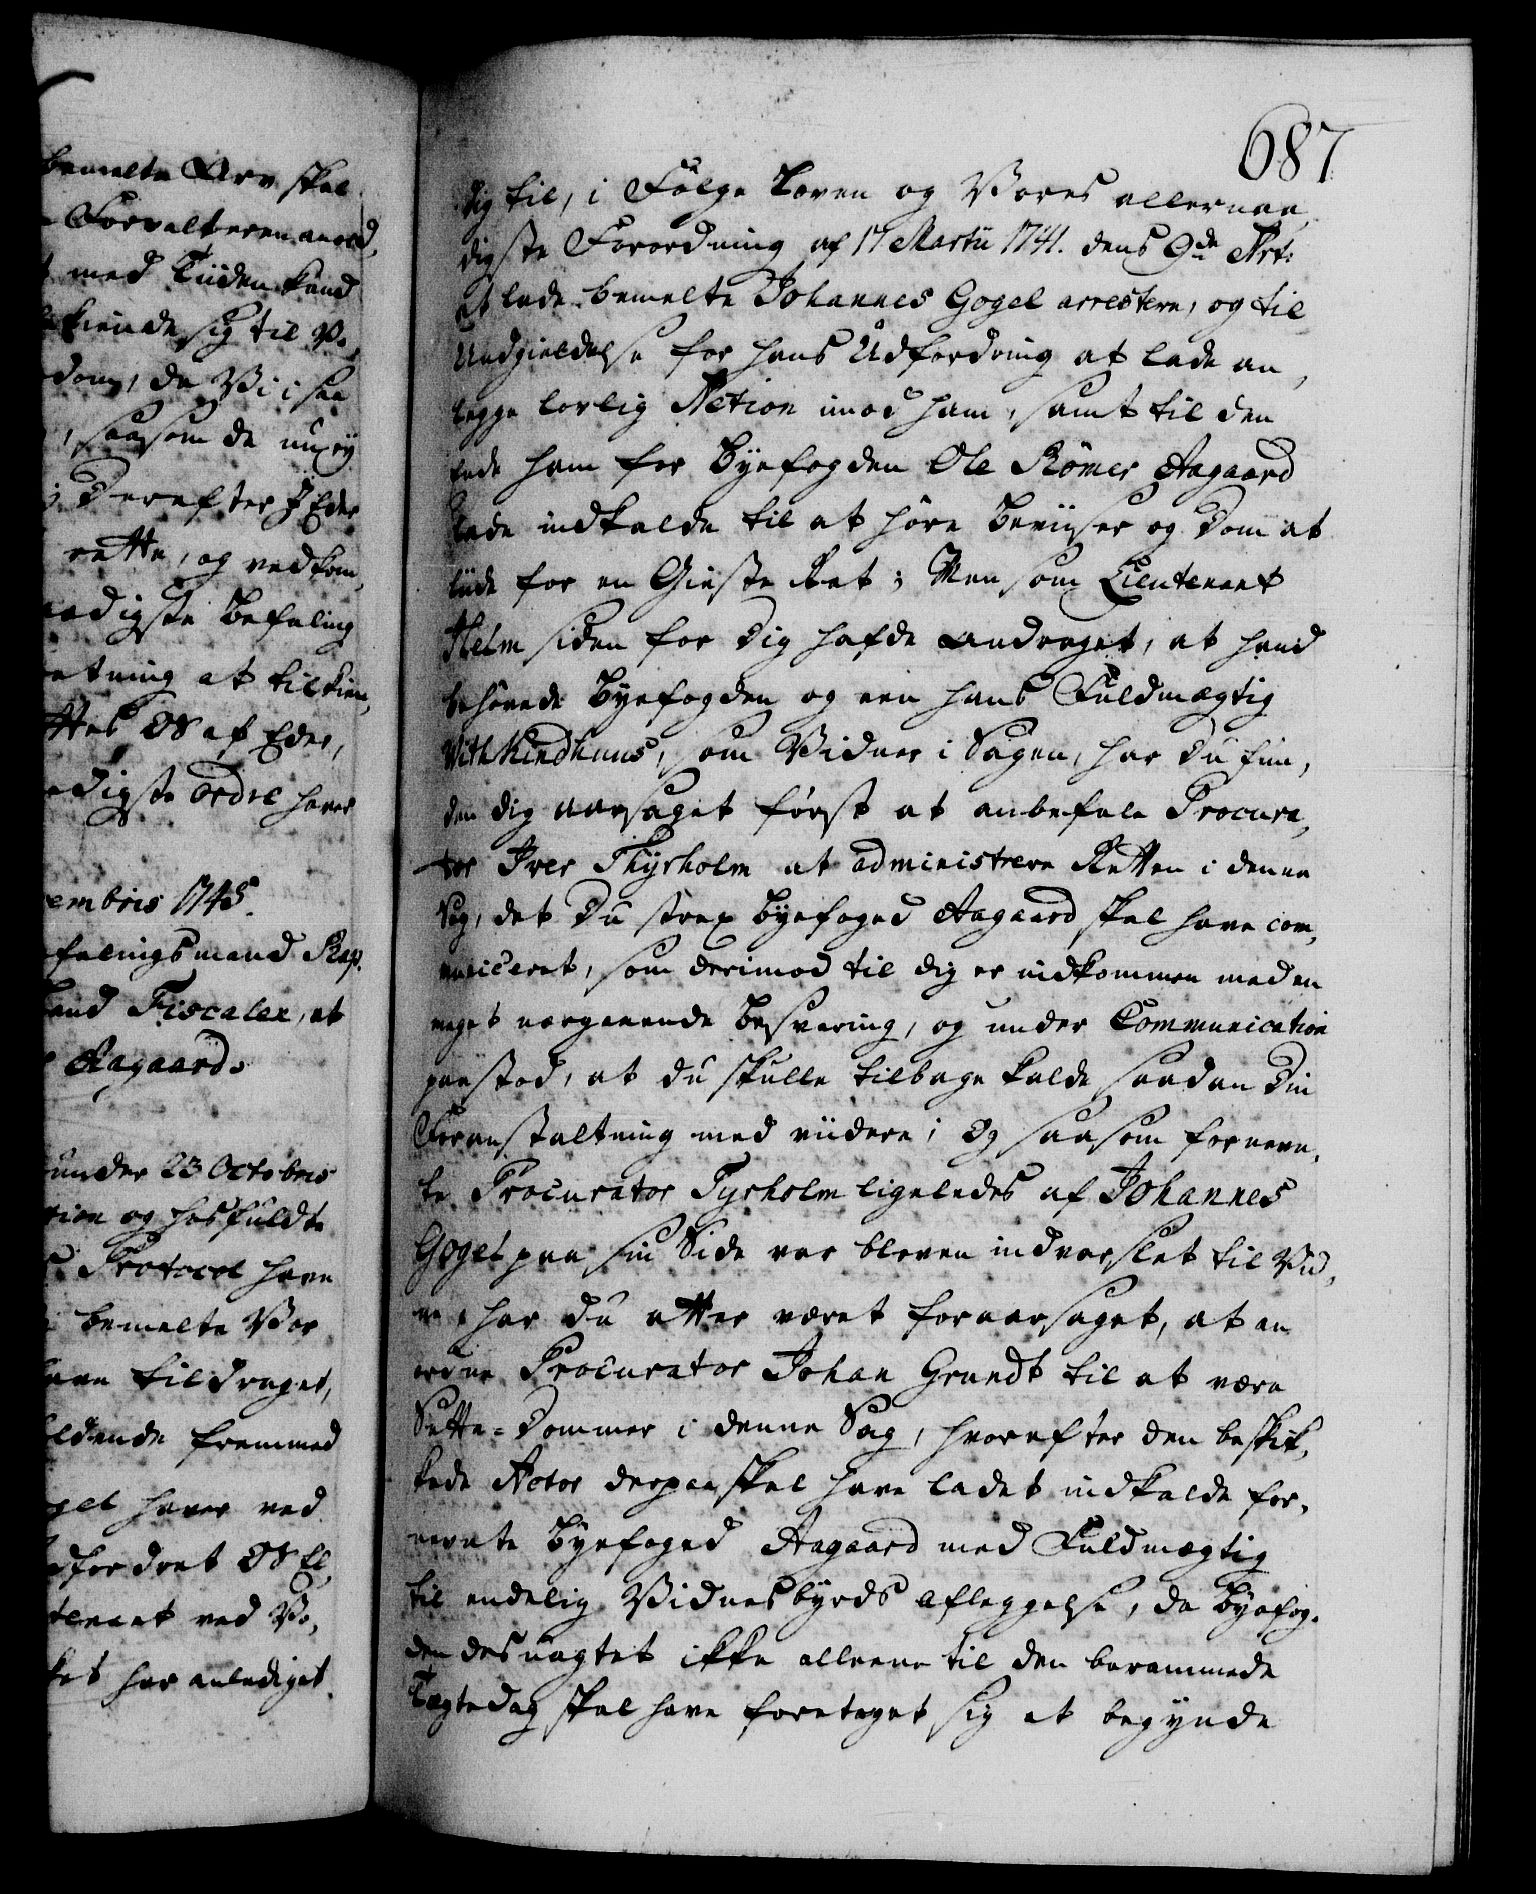 bemelte Arv skal
Forvalteren anvld,
med Tiiden kand
kiende sig til Po,
dom, da Vi i saa
, saasom de nu ey
Derefter I Eder
rette, og vedkom,
aadigste Befaling
retning at tilkien,
ttes OS af Eder,
adigste ordre haver
embris 1745.
falingsmand Rap.
Land Fiscaler, at
Aagaard.
under 23 Octobris
tion og hosfuldte
Protocol have
bemelte Vor
have tildraget,
ldende fremmed
gel haver ved
dfordret OS El,
tenant ved Po,
ket har anlediget
687
dig til, i Følge Loven og Vores allernaa,
digste Forordning af 17 Martii 1741. dens 9de Art:
at lade bemelte Johannes Gogel arrestere, og til
Undgieldelse for hans Udfordring at lade an,
legge lovlig Action imod ham, samt til den
ende ham for Byefogden Ole Rømer Aagaard
lade indkalde til at høre Beviiser og Dom at
liide for en Gieste Ret; Men som Lieutenant
Helm siden for Dig hafde andraget, at hand
behøvede Byefogden og een hans Fuldmægtig
With Kindhuus, som Vidner i Sagen, har Du fun,
den dig aarsaget først at anbefale Procura,
tor Iver Thyrholm at administrere Retten i denne
Sag, det Du strax Byefoged Aagaard skal have com,
municeret, som derimod til dig er indkommen med en
meget nærgaaende Besværing, og under Communication
paastod, at du skulle tilbage kalde saadan Din
Foranstaltning med viidere; Og saasom fornevn,
te Procurator Tyrholm ligeledes af Johannes
Gogel paa sin Side var bleven indvarslet til Vid,
ne, har du atter været foraarsaget, at an
ordne Procurator Johan Grundt til at være
Sætte-Dommer i denne Sag, hvorefter den beskik,
kede Actor derpaa skal have ladet indkalde for,
nevnte Byefoged Aagaard med Fuldmægtig
til endelig Vidnesbyrds aflæggelse, da Byefog,
den desuagtet ikke alleene til den berammede
Tægtedag skal have foretaget sig at begynde